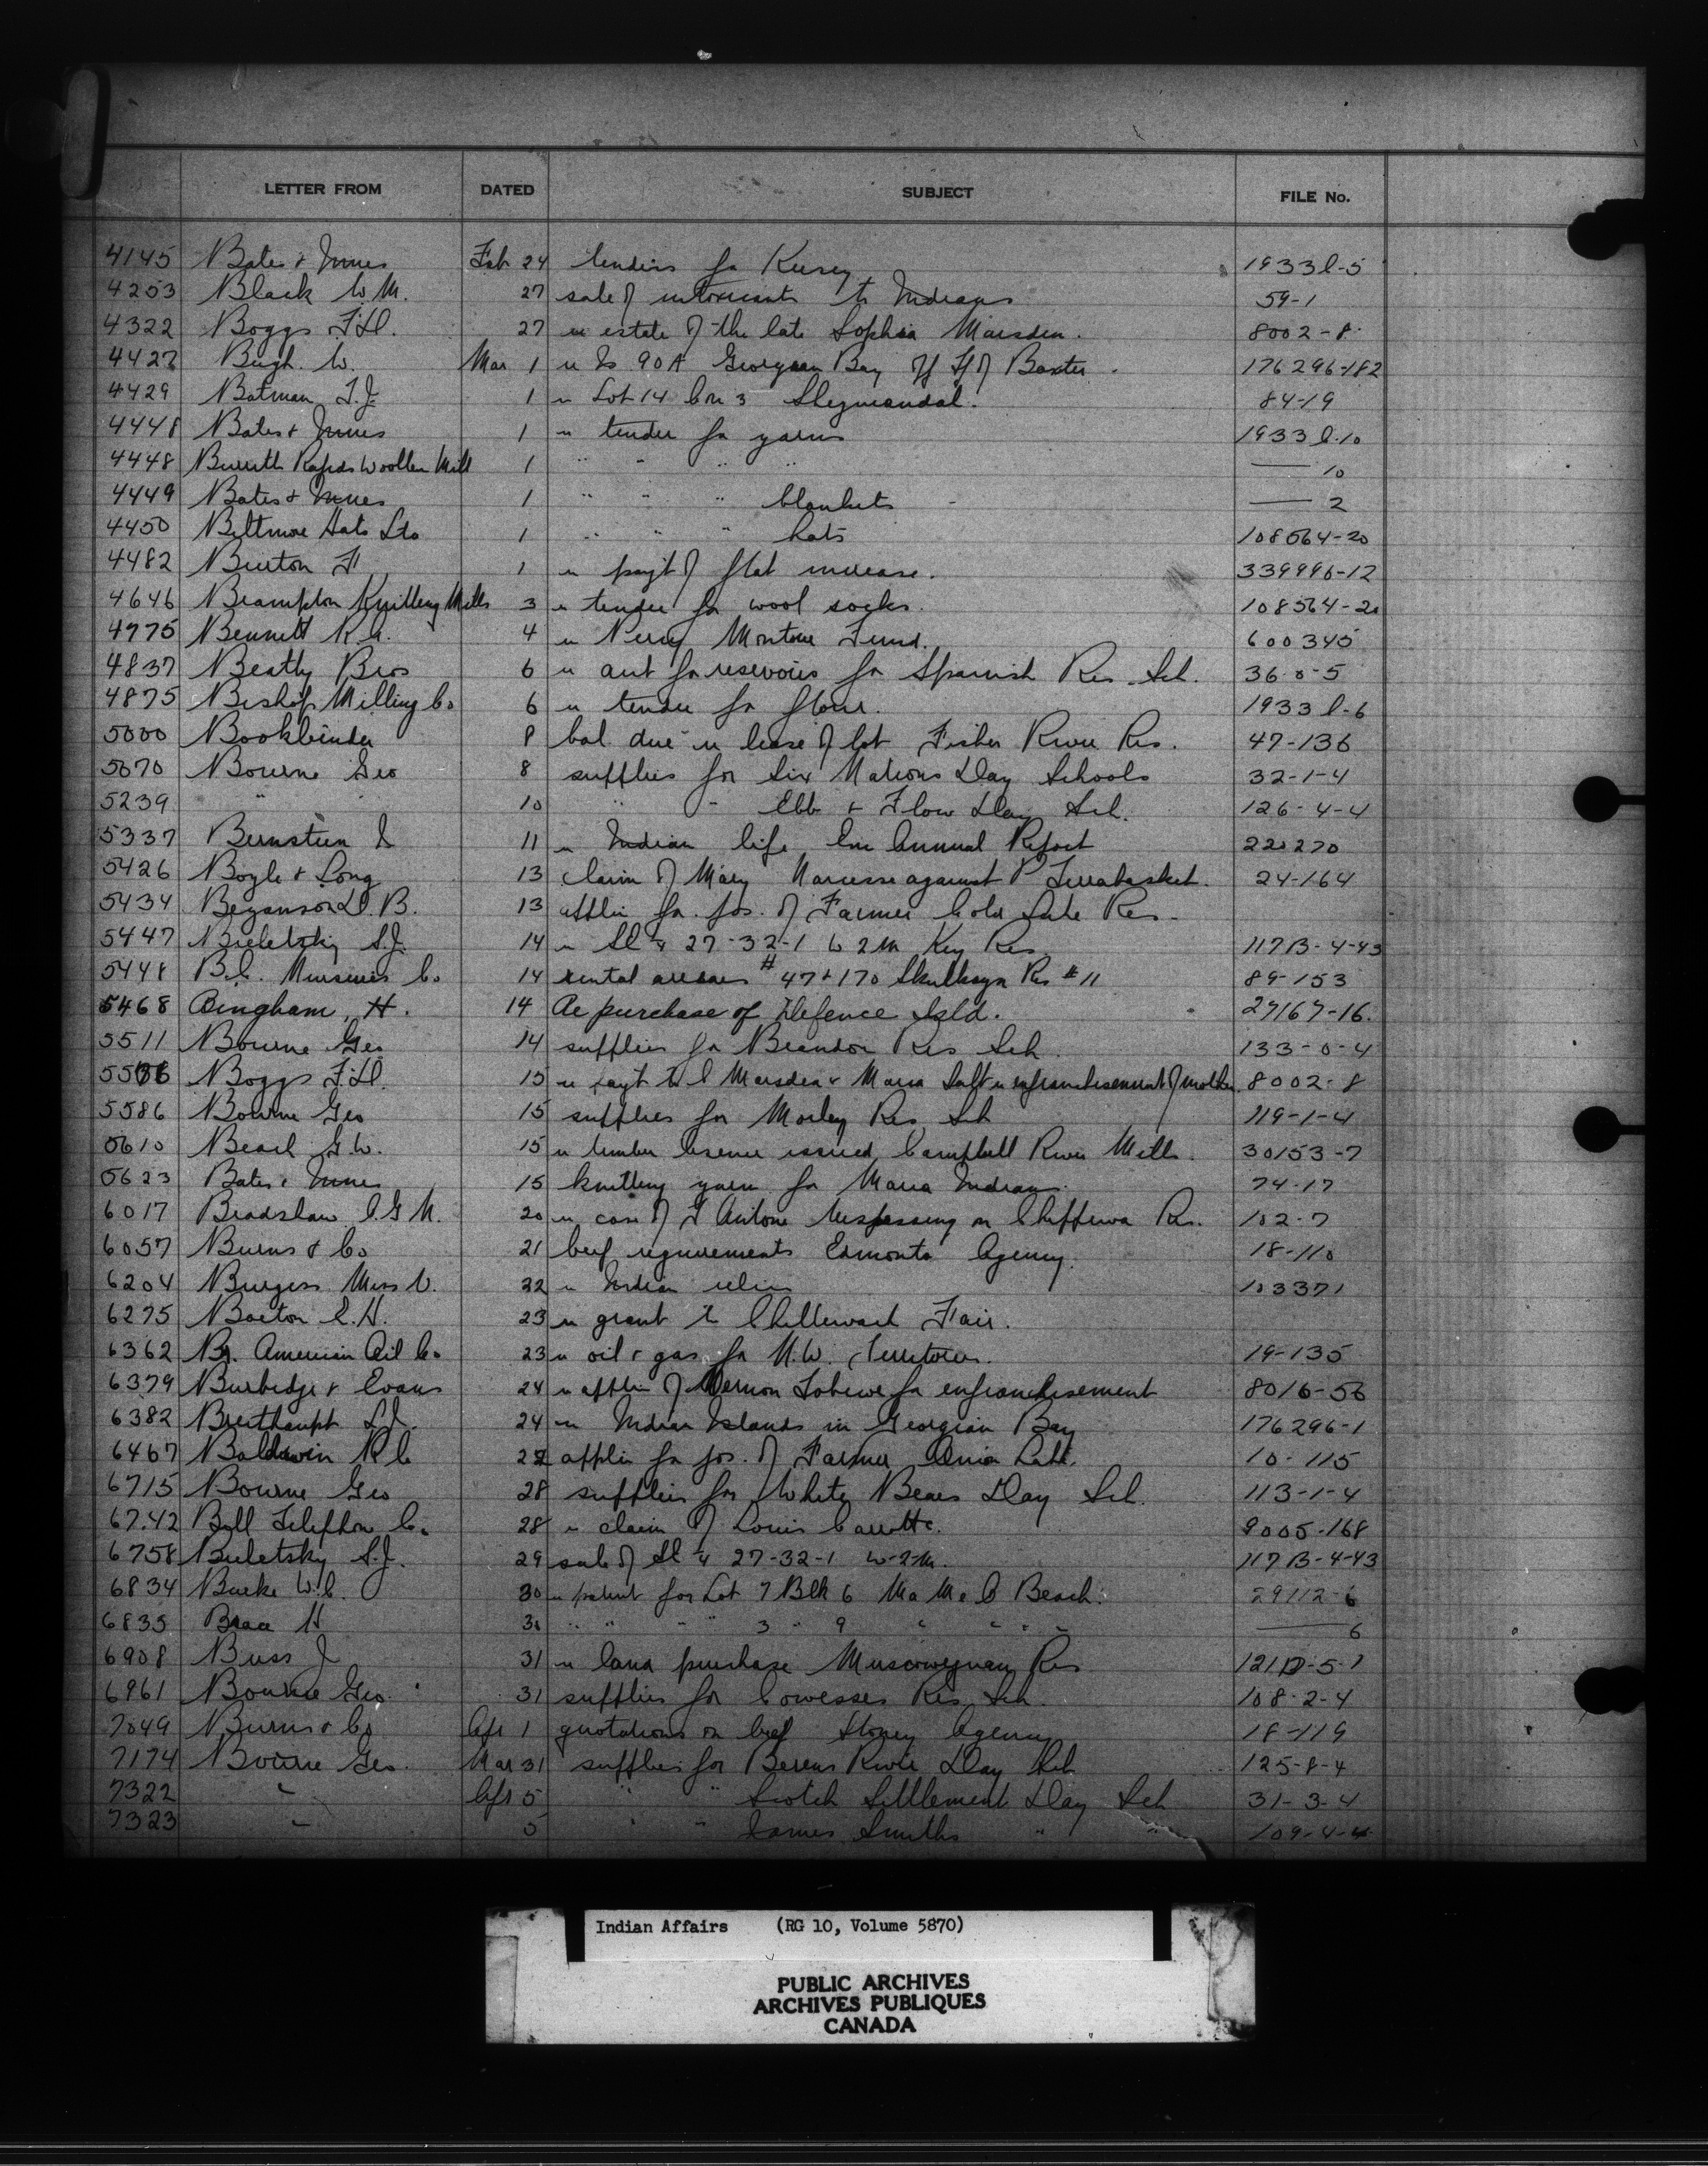 LETTER FROM DATED SUBJECT FILE No.
4145 Bates & Innes Feb 24 tenders for Kersey 1933 l-5
4253 Black W M. 27 sale of intoxicants to Indians 59-1
4322 Boggs F.H. 27 re estate of the late Sophia Marsden. 8002-8
4427 W. Mar 1 re Is 90A Georgian Bay off Tp of Baxter. 176296-182
4429 Batman T.J. 1 re Lot 14 Con 3 Shegueandah. 84-19
4448 Bates & Innes 1 re tender for yarns 1933 l-10
4448 Burritts Rapids Woollen Mill 1 " " " " —— 10
4449 Bates & Innes 1 " " " blankets —— 2
4450 Biltmore Hats Ltd 1 " " " hats 108564-20
4482 Burton F 1 re payt of flat increase. 339996-12
4646 Brampton Knitting Mills 3 re tender for wool socks. 108564-20
4775 Bennett R.A. 4 re Percy Monture Fund. 600345
4837 Beatty Bros 6 re acct for reservoirs for Spanish Res. Sch. 36-0-5
4875 Bishop Milling Co 6 re tender for flour. 1933 l-6
5000 Bookbinder 8 bal. due re lease of lot Fisher River Res. 47-136
5070 Bourne Geo 8 supplies for Six Nations Day Schools 32-1-4
5239 " " 10 " " Ebb & Flow Day Sch. 126-4-4
5337 Bernstein 11 re Indian life Annual Report 220270
5426 Boyle & Long 13 claim of Mary Narcisse against P Terrabasket. 24-164
5434 D.B. 13 applin for pos. of Farmer Cold Lake Res.
5447 Bieletsky S.J. 14 re SE ¼ 27-32-1 W 2M Key Res 117B-4-43
5448 B.C. Nurseries Co 14 rental arrears #47 & 170 Skulkayn Res #11 89-153
5468 Bingham, H. 14 Re purchase of Defence Isld. 27167-16.
5511 Bourne Geo 14 supplies for Brandon Res Sch. 133-0-4
Boggs F.H. 15 re payt to C Marsden & Maria Salt re enfranchisement of mother 8002-8
5586 Bourne Geo 15 supplies for Morley Res Sch 119-1-4
5610 Beach G.W. 15 re timber license issued, Campbell River Mills. 30153-7
5623 Bates & Innes 15 knitting yarn for Maria Indians. 74-17
6017 Bradshaw C.G.M. 20 re case of Antone trespassing on Chippewa Res. 102-7
6057 Burns & Co 21 beef requirements Edmonton Agency. 18-110
6204 Burgess Miss V. 22 re Indian relics 103371
6275 Barton C.H. 23 re grant to Chilliwack Fair.
6362 Br. American Oil Co 23 re oil & gas for N.W. Territories. 19-135
6379 Burbidge & Evans 24 re applin of Vernon for enfranchisement 8016-56
6382 Breithaupt L.J. 24 re Indian Islands in Georgian Bay 176296-1
6467 Baldwin R C 27 applin for pos. of Farmer Onion Lake. 10-115
6715 Bourne Geo 28 supplies for White Bears Day Sch. 113-1-4
6742 Bell Telephone Co. 28 re claim of Louis 9005-168
6758 Bieletsky S.J. 29 sale of SE ¼ 27-32-1 W-2-M. 117B-4-43
6834 Burke W.C. 30 re patent for Lot 7 Blk 6 Ma Me O Beach. 29112-6
6835 H 30 " " " 3 " 9 " " " " —— 6
6908 Buss J 31 re land purchase Muscowequan Res 121D-5-1
6961 Bourne Geo. 31 supplies for Cowesses Res. Sch. 108-2-4
7049 Burns & Co Apl 1 quotations on beef Stoney Agency 18-119
7174 Bourne Geo. Mar 31 supplies for Berens River Day Sch 125-8-4
7322 " Apl 5 " " Scotch Settlement Day Sch 31-3-4
7323 " 5 " " James Smiths " " 109-4-4
Indian Affairs (RG 10, Volume 5870)
PUBLIC ARCHIVES
ARCHIVES PUBLIQUES
CANADA